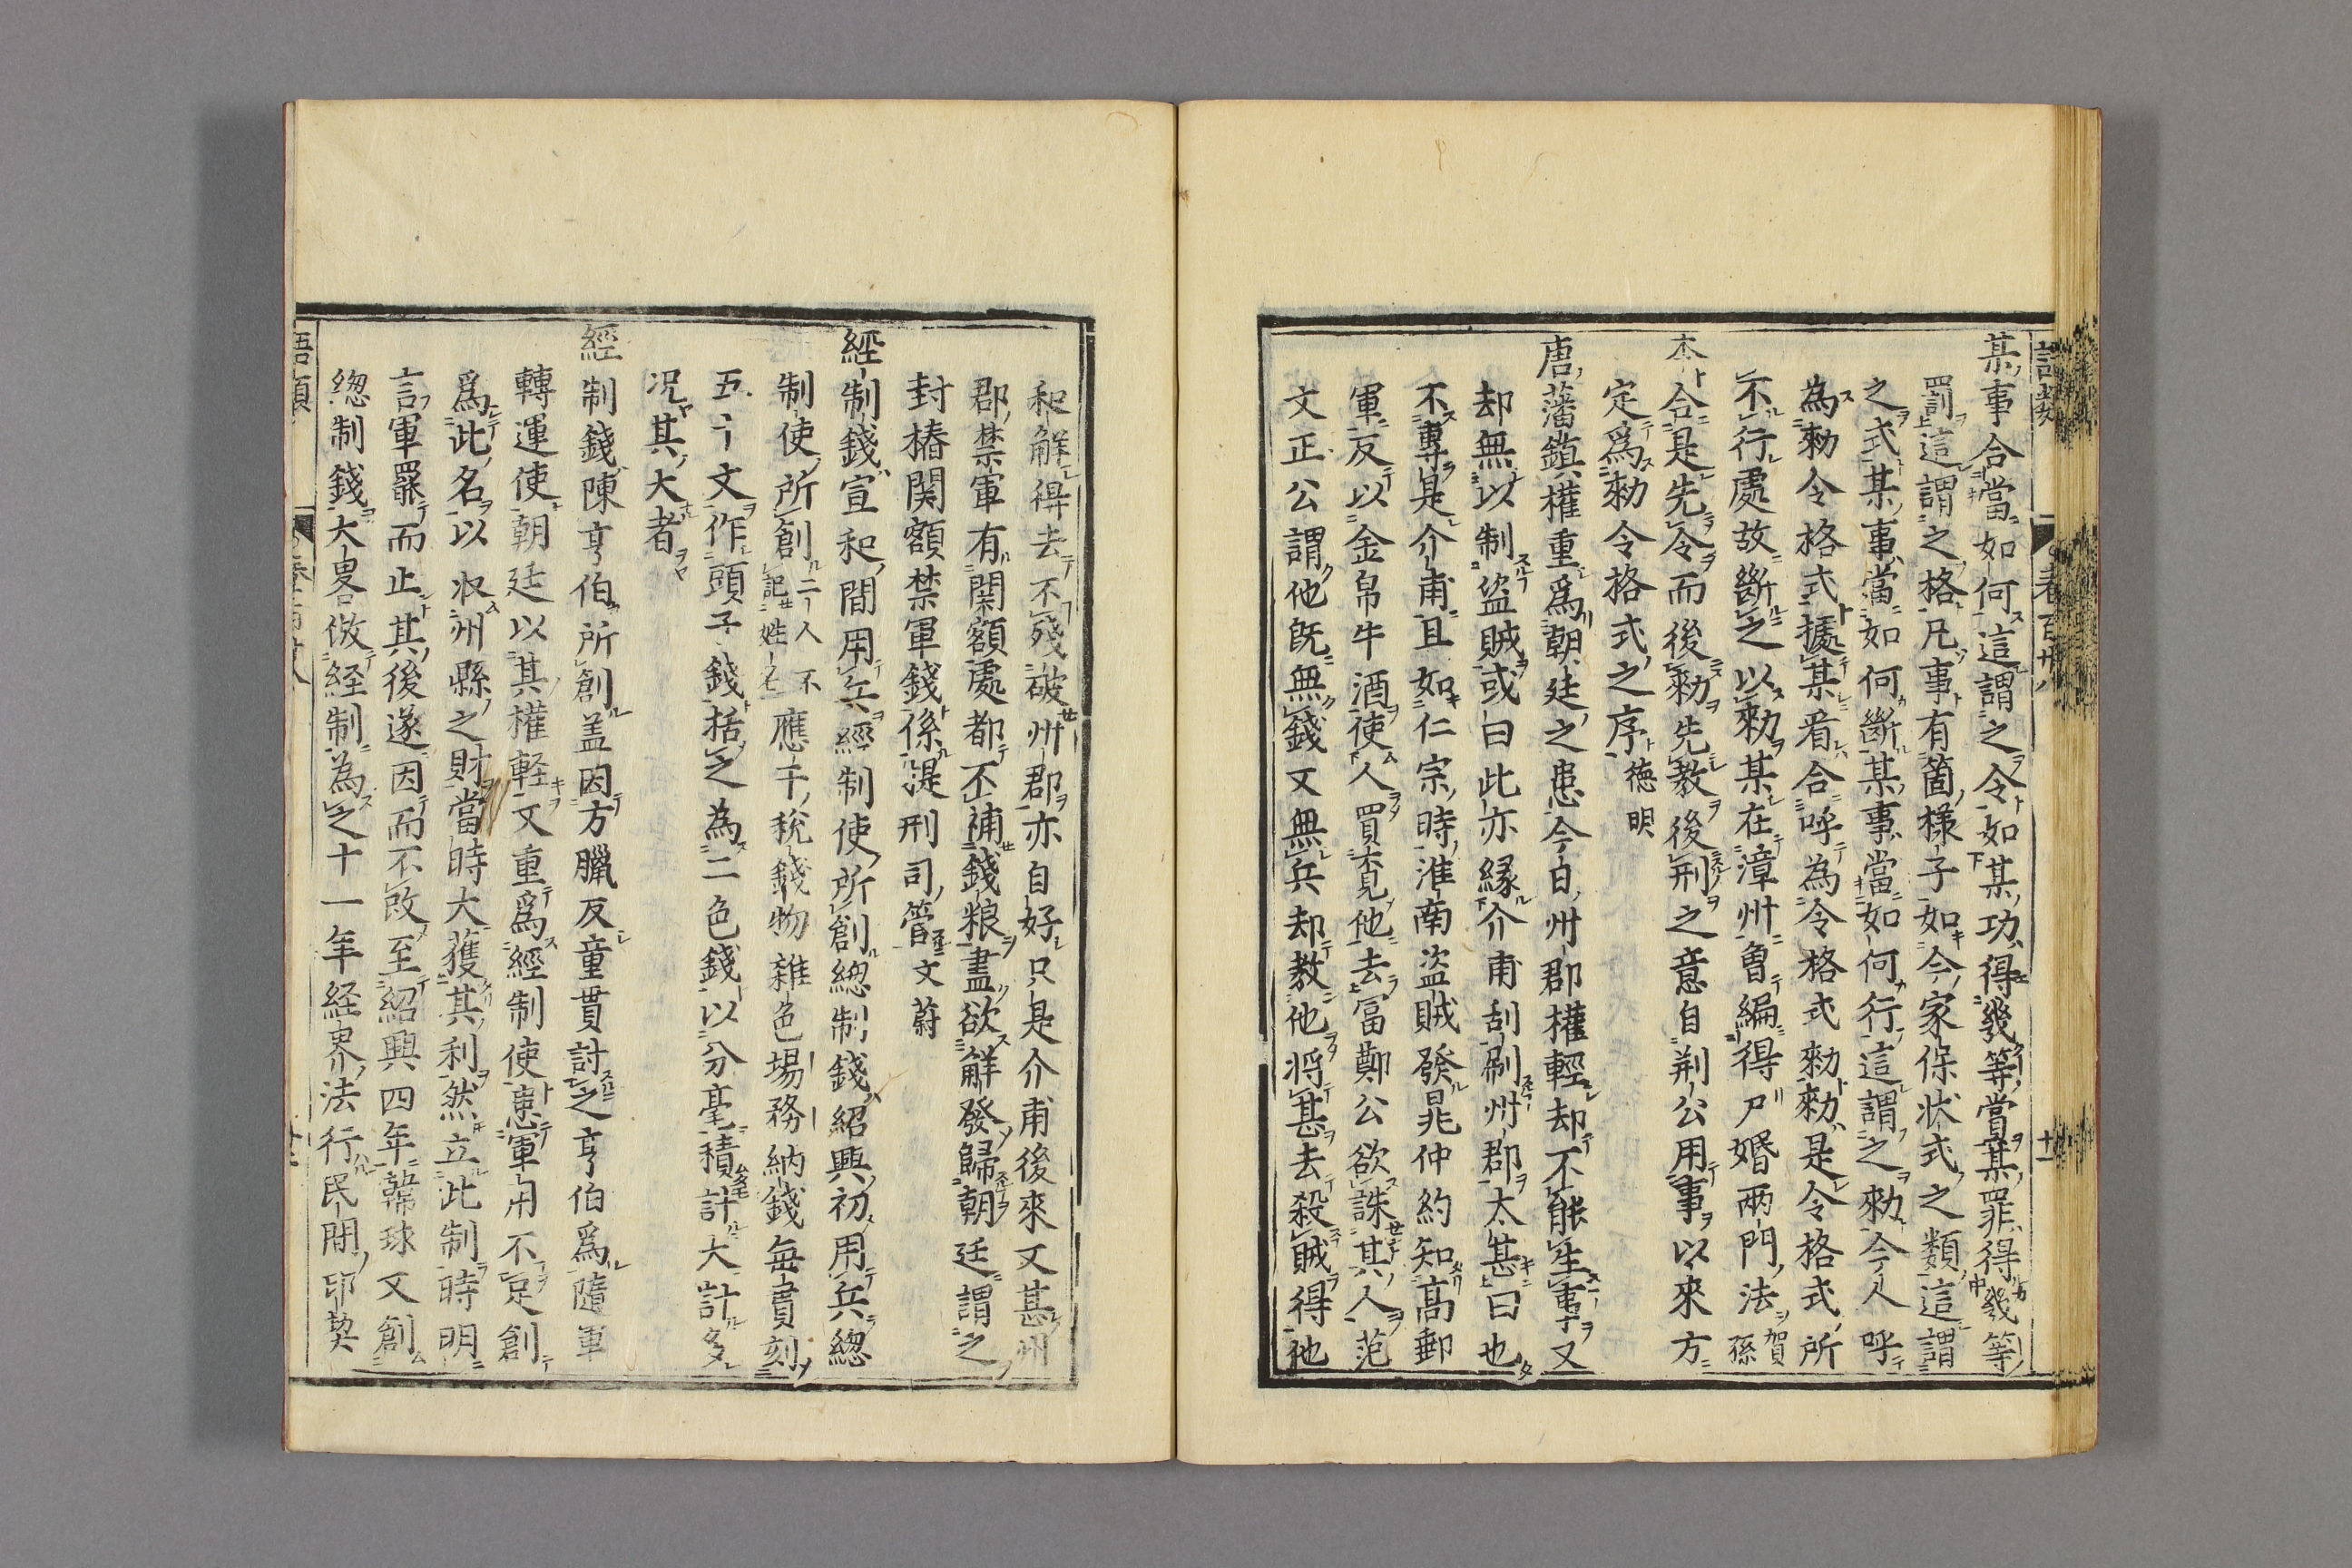 語類　卷百廿八　十一
某事合當如何這謂之令如某功得幾等賞某罪得幾等
罰這謂之格凡事有箇樣子如今家保状式之類這謂
之式某事當如何斷某事當如何行這謂之勑今人呼
為勑令格式據某看合呼為令格式勑勑是令格式所
不行處故斷之以勑某在漳州曾編得尸婚兩門法賀孫
本合是先令而後勑先教後刑之意自荆公用事以來方
定爲勑令格式之序德明
唐藩鎮權重爲朝廷之患今日州郡權輕却不能生事又
却無以制盜賊或曰此亦縁介甫刮刷州郡太甚曰也
不專是介甫且如仁宗時淮南盜賊發晁仲約知高郵
軍反以金帛牛酒使人買覔他去富鄭公欲誅其人范
文正公謂他既無錢又無兵却教他將甚去殺賊得他
和解得去不殘破州郡亦自好只是介甫後來又甚州
郡禁軍有闕額處都不補錢粮盡欲解發歸朝廷謂之
封樁関額禁軍錢係提刑司管文蔚
經制錢宣和間用兵經制使所創總制錢紹興初用兵總
制使所創二人不記姓名應干税錢物雜色場務納錢每貫刻
五十文作頭子錢括之為二色錢以分毫積計大計多
况其大者
經制錢陳亨伯所創盖因方臘反童貫討之亨伯爲隨軍
轉運使朝廷以其權軽又重爲經制使患軍用不足創
爲此名以収州縣之財當時大獲其利然立此制時明
言軍罷而止其後遂因而不改至紹興四年韓球又創
總制錢大畧倣経制為之十一年経界法行民間印契
語類　卷百廿八